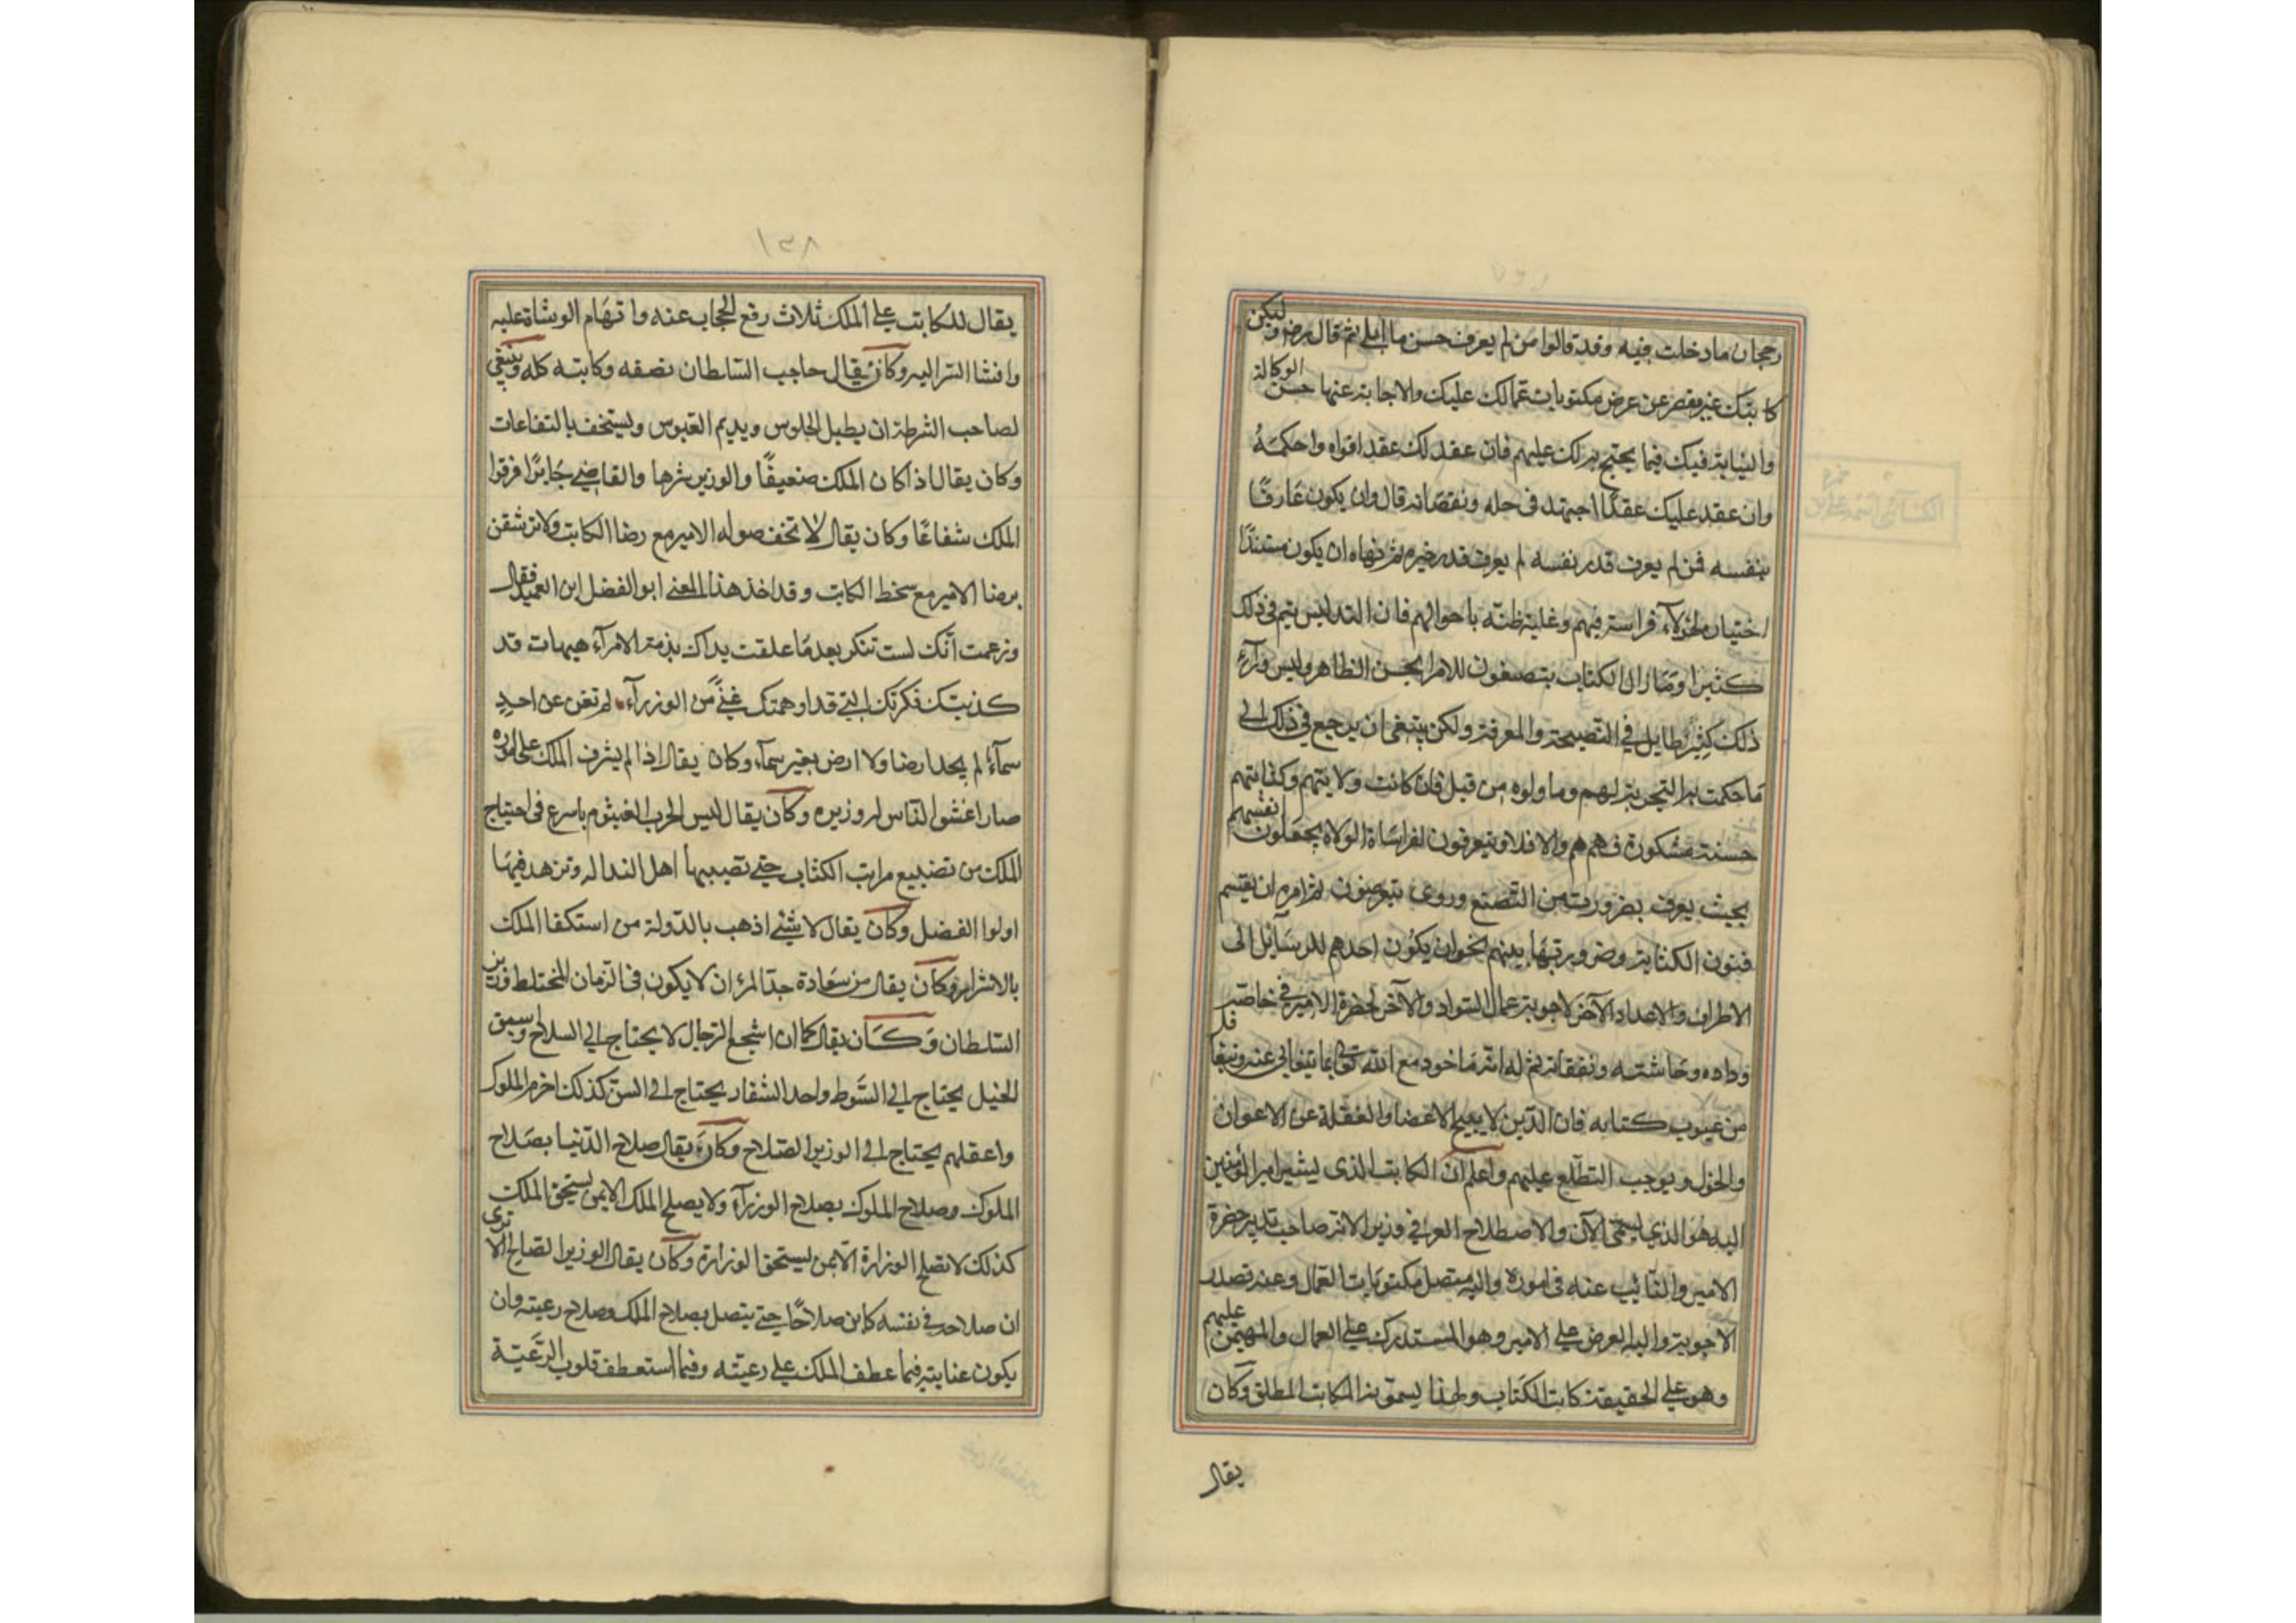 رجحان ما دخلت فيه وقد قالوا من لم يعرف حسن ما ابلى ثم قال رض وليكن
كاتبك غير مقصر عن عرض مكتوبات عمالك عليك والاجابة عنها حسن الوكالة
والنيابة فيك فيما يحتج به لك عليهم فان عقد لك عقد اقواه واحكمه
وان عقد عليك عقدًا اجتهد في حله ونقصانه قال وان يكون عارفًا
بنفسه فمن لم يعرف قدر نفسه لم يعرف قدر غيره ثم نهاه ان يكون مستندًا
اختيار هؤلاء فراسته فيهم وغلبة ظنه باحوالهم فان التدليس يتم في ذلك
كثيرا وما زال الكتاب يتصنعون للامرا بحسن الظاهر وليس ورآء
ذلك كثير طايل في النصيحة والمعرفة ولكن ينبغي ان يرجع في ذلك الى
ما حكمت به التجربة لهم وما ولوه من قبل فان كانت ولايتهم وكتابتهم
حسنة مشكورة فهم هم والا فلا ويتعرفون لفراساة الولاة يجعلون انفسهم
بحيث يعرف بضروريته من التصنع وروى يتعرضون ثم امره ان يقسم
فنون الكتابة وضروبها بينهم نحو ان يكون احدهم للرسائل الى
الاطراف والاعداد الآخر لاجوبة عمال السواد والآخر لحضرة الامير في خاصته
وداده وحاشيته ونفقاته ثم له انه ماخود مع الله تعالى بما يتغابى عنه ويتغافل
من عيوب كتابه فان الدين لا يبيح الاغضا والغفلة عن الاعوان
والخول ويوجب التطلع عليهم واعلم ان الكاتب الذي يشير امير المؤمنين
اليه هو الذي يسمى الآن والاصطلاح العرفي وزير الانه صاحب تدبير حضرة
الامير والنائب عنه في اموره واليه متصل مكتوبات العمال وعنه تصدر
الاجوبة واليه العرض على الامير وهو المستدرك على العمال والمهيمن عليهم
وهو على الحقيقة كاتب الكتاب ولهذا يسمونه الكاتب المطلق وكان
يقال
١٣٨
يقال للكاتب على الملك ثلاث رفع الحجاب عنه واتهام الوشاة عليه
وافشا السر اليه وكان يقال حاجب السلطان نصفه وكاتبه كله وينبغي
لصاحب الشرطة ان يطيل الجلوس ويديم العبوس ويستخف بالشفاعات
وكان يقال اذا كان الملك ضعيفًا والوزير شرها والقاضي جايرًا فرقوا
الملك شفاعًا وكان يقال لا تخف صوله الامير مع رضا الكاتب ولا تثقن
برضا الامير مع سخط الكاتب وقد اخذ هذا المعنى ابو الفضل ابن العميد فقال
وزعمت أنك لست تنكر بعد ما علقت يداك بذمة الامرآء هيهات قد
كذبتك فكرتك التي قد اوهمتك غنًى من الوزرآء لم تغن عن احدٍ
سمآءٌ لم يجد ارضا ولا ارض بغير سمآء وكان يقال اذا لم يشرف الملك على اموره
صار اغش الناس له وزيره وكان يقال ليس الحرب الغشوم باسرع في اجتياح
الملك من تضييع مراتب الكتاب حتى تصيبها اهل النذاله وتزهد فيها
اولوا الفضل وكان يقال لا شيئ اذهب بالدولة من استكفا الملك
بالاشرار وكان يقال من سعادة جد المرء ان لا يكون في الزمان المختلط وزير
السلطان وكان يقال كما ان اشجع الرجال لا يحتاج الى السلاح واسبق
الخيل يحتاج الى السوط واحد الشفار يحتاج الى السن كذلك احزم الملوك
واعقلهم يحتاج الى الوزير الصلاح وكان يقال صلاح الدنيا بصلاح
الملوك وصلاح الملوك بصلاح الوزرآء ولا يصلح الملك الا بمن يستحق الملك
كذلك لا تصلح الوزارة الا بمن يستحق الوزارة وكان يقال الوزير الصالح لا ترى
ان صلاحه في نفسه كاين صلاحًا حتى يتصل بصلاح الملك وصلاح رعيته وان
يكون عنايته فيما عطف الملك على رعيته وفيما استعطف قلوب الرعية